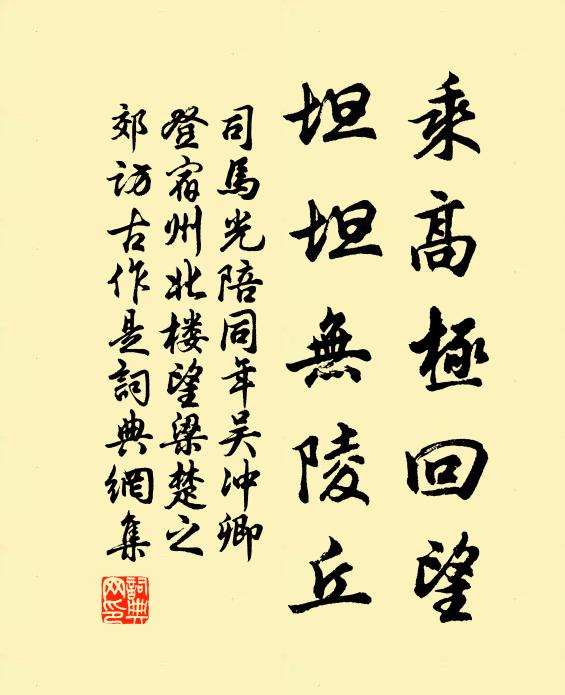 乘高極回望
坦坦無陵丘
司馬光陪同年吴冲卿
登宿州北楼望梁楚之
郊访古作是詞典網集
詞典網印